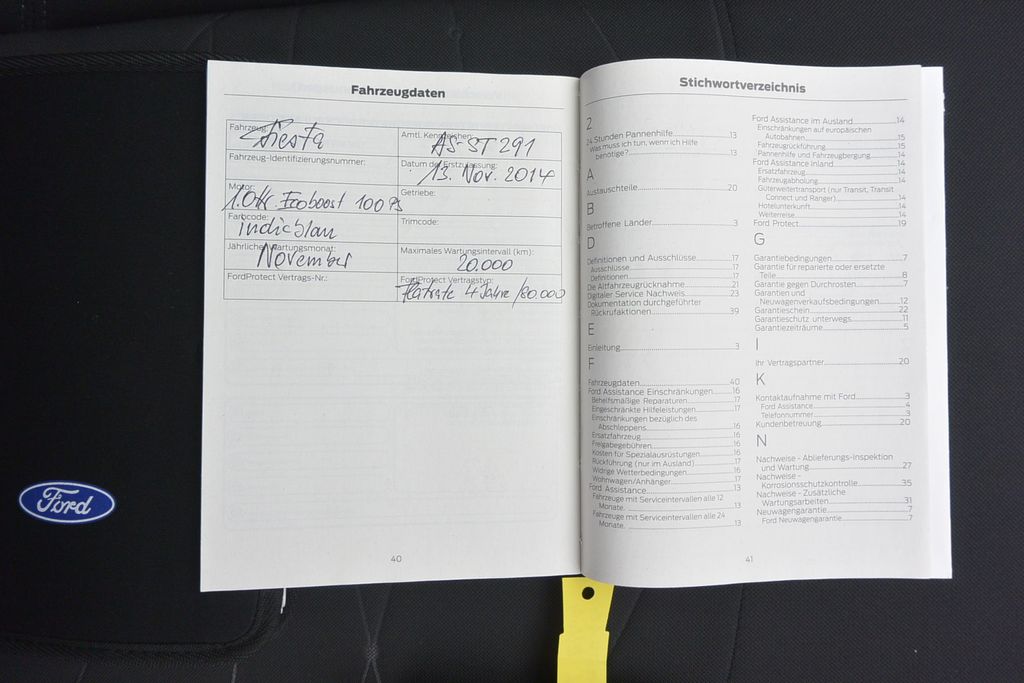 Fahrzeugdaten
Fahrzeug: Fiesta
Amtl. Kennzeichen: AS-ST 291
Fahrzeug-Identifizierungsnummer:
Datum der Erstzulassung: 13. Nov. 2014
Motor: 1.0ltr. Ecoboost 100 PS
Getriebe:
Farbcode: indicblau
Trimcode:
Jährlicher Wartungsmonat: November
Maximales Wartungsintervall (km): 20.000
FordProtect Vertrags-Nr.:
FordProtect Vertragstyp: Flatrate 4 Jahre /80.000
40
Stichwortverzeichnis
2
24 Stunden Pannenhilfe 13
Was muss ich tun, wenn ich Hilfe
benötige? 13
A
Austauschteile 20
B
Betroffene Länder 3
D
Definitionen und Ausschlüsse 17
Ausschlüsse 17
Definitionen 17
Die Altfahrzeugrücknahme 21
Digitaler Service Nachweis 23
Dokumentation durchgeführter
Rückrufaktionen 39
E
Einleitung 3
F
Fahrzeugdaten 40
Ford Assistance Einschränkungen 16
Behelfsmäßige Reparaturen 17
Eingeschränkte Hilfeleistungen 17
Einschränkungen bezüglich des
Abschleppens 16
Ersatzfahrzeug 16
Freigabegebühren 16
Kosten für Spezialausrüstungen 16
Rückführung (nur im Ausland) 17
Widrige Wetterbedingungen 16
Wohnwagen/Anhänger 17
Ford Assistance 13
Fahrzeuge mit Serviceintervallen alle 12
Monate. 13
Fahrzeuge mit Serviceintervallen alle 24
Monate. 13
Ford Assistance im Ausland 14
Einschränkungen auf europäischen
Autobahnen 15
Fahrzeugrückführung 15
Pannenhilfe und Fahrzeugbergung 14
Ford Assistance Inland 14
Ersatzfahrzeug 14
Fahrzeugabholung 14
Güterweitertransport (nur Transit, Transit
Connect und Ranger) 14
Hotelunterkunft 14
Weiterreise 14
Ford Protect 19
G
Garantiebedingungen 7
Garantie für reparierte oder ersetzte
Teile 8
Garantie gegen Durchrosten 7
Garantien und
Neuwagenverkaufsbedingungen 12
Garantieschein 22
Garantieschutz unterwegs 11
Garantiezeiträume 5
I
Ihr Vertragspartner 20
K
Kontaktaufnahme mit Ford 3
Ford Assistance 4
Telefonnummer 3
Kundenbetreuung 20
N
Nachweise - Ablieferungs-Inspektion
und Wartung 27
Nachweise -
Korrosionsschutzkontrolle 35
Nachweise - Zusätzliche
Wartungsarbeiten 31
Neuwagengarantie 7
Ford Neuwagengarantie 7
41
Ford